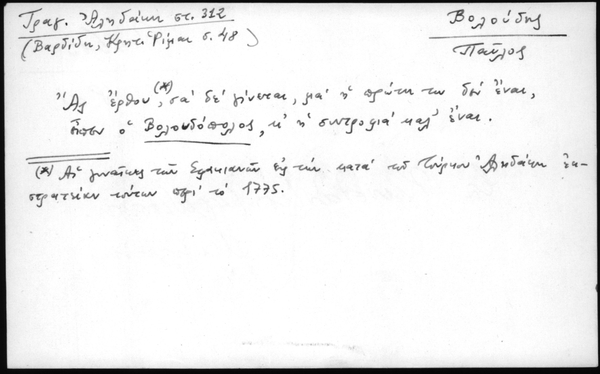 Τραγ. Ἀληδάκη στ. 312
(Βαρδίδη, Κρητ. Ρίμαι σ. 48)
Βολούδης
Παῦλος
"Ἄς ἔρθου(*), σὰ δὲ γίνεται, μὰ ἡ πρώτη των δὲν ἔναι,
εἶπεν ὁ Βολουδόπολος, κ' ἡ συντροφιὰ καλ' ἔναι.
(*) Αἱ γυναῖκες τῶν Σφακιανῶν εἰς τὴν κατὰ τοῦ Τούρκου Ἀληδάκη ἐκ-
στρατείαν τούτων περὶ τὸ 1775.